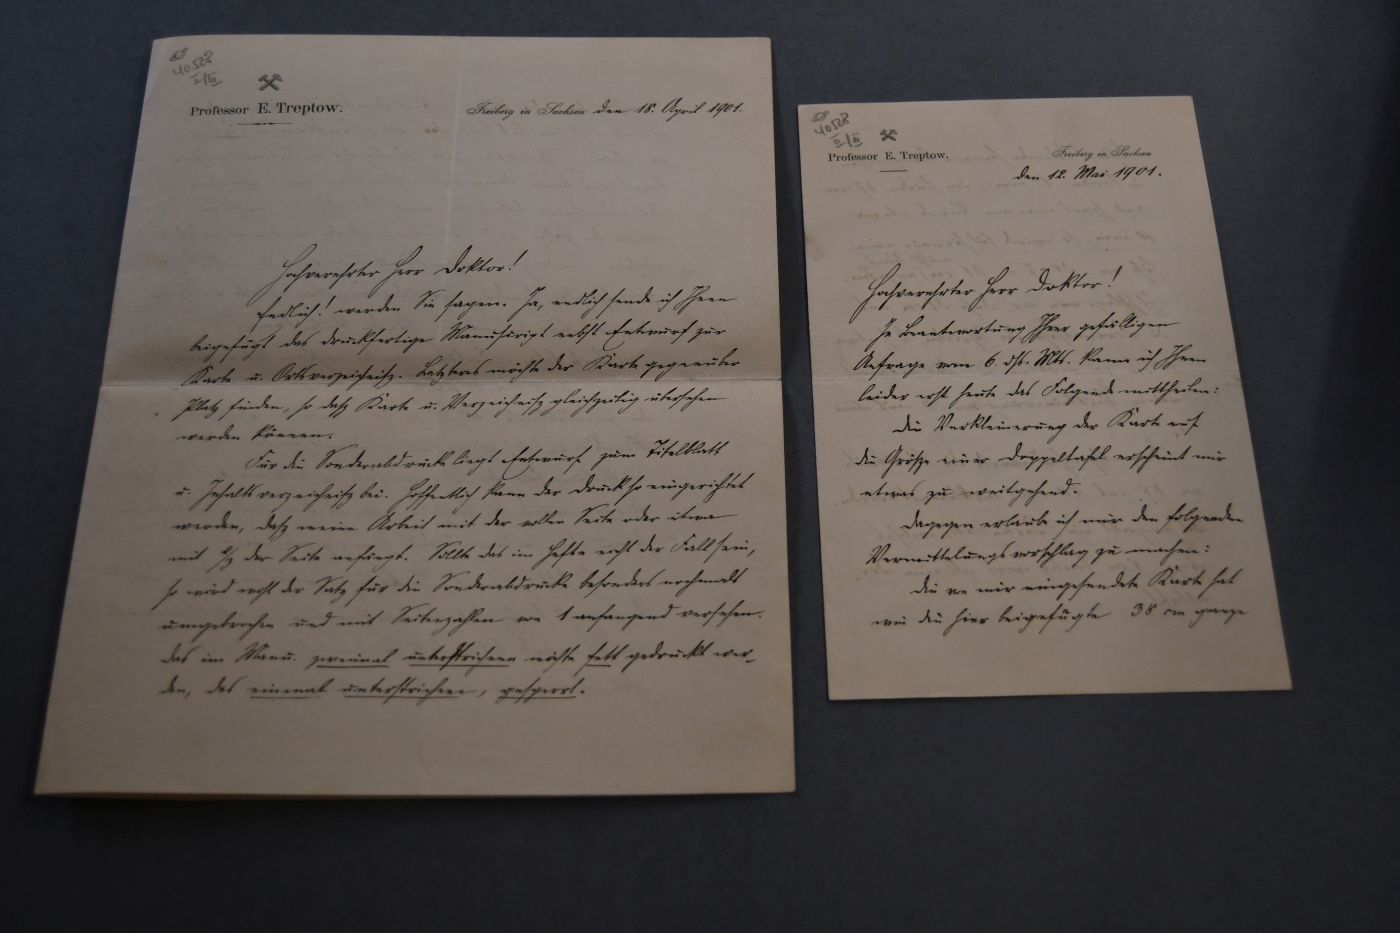 40528
I/III
Professor E. Treptow.
Freiberg in Sachsen den 18. April 1901.
Hochverehrter Herr Doktor!
Endlich! werden Sie sagen. Ja, endlich sende ich Ihnen
beigefügt das druckfertige Manuscript nebst Entwurf zur
Karte u. Ortsverzeichniß. Letzteres möchte der Karte gegenüber
Platz finden, so daß Karte u. Verzeichniß gleichzeitig übersehen
werden können.
Für die Sonderabdrücke liegt Entwurf zum Titelblatt
u. Inhaltsverzeichniß bei. Hoffentlich kann der Druck so eingerichtet
werden, daß meine Arbeit mit der vollen Seite oder etwa
mit 2/3 der Seite anfängt. Sollte das im Hefte nicht der Fall sein,
so wird wohl der Satz für die Sonderabdrücke besonders nochmals
umgebrochen und mit Seitenzahlen von 1 anfangend versehen.
Das im Manu. zweimal unterstrichene möchte fett gedruckt wer-
den, das einmal unterstrichene, gesperrt.
40528
II/III
Professor E. Treptow.
Freiberg in Sachsen
den 12. Mai 1901.
Hochverehrter Herr Doktor!
In Beantwortung Ihrer gefälligen
Anfrage vom 6. dss. Mts. kann ich Ihnen
leider erst heute das Folgende mittheilen:
Die Verkleinerung der Karte auf
die Größe einer Doppeltafel erscheint mir
etwas zu weitgehend.
Dagegen erlaube ich mir den folgenden
Vermittelungsvorschlag zu machen:
Die von mir eingesendete Karte hat
wie die hier beigefügte 38 cm ganze